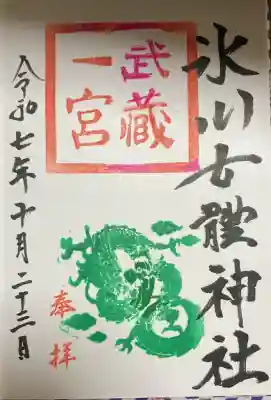 氷川女體神社
武藏
一宮
奉拝
令和七年十月二十三日